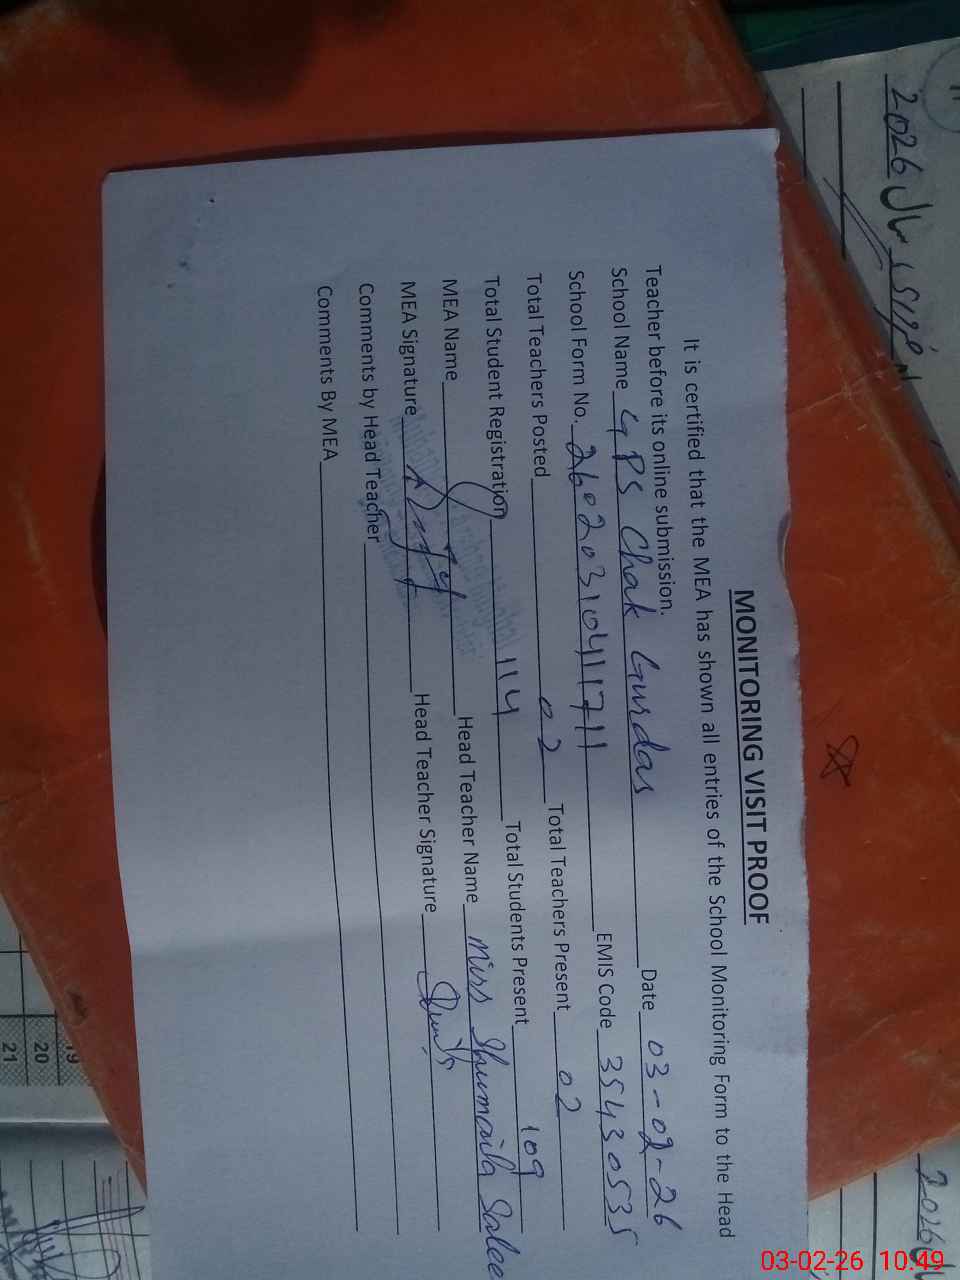 MONITORING VISIT PROOF
It is certified that the MEA has shown all entries of the School Monitoring Form to the Head
Teacher before its online submission.
School Name GPS Chak Gurdas Date 03-02-26
School Form No. 2602031041711 EMIS Code 35430535
Total Teachers Posted 02 Total Teachers Present 02
Total Student Registration 114 Total Students Present 109
MEA Name Head Teacher Name Miss Shumaila Salee
MEA Signature Head Teacher Signature
Comments by Head Teacher
Comments By MEA
2026
2026
19
20
21
03-02-26 10:49